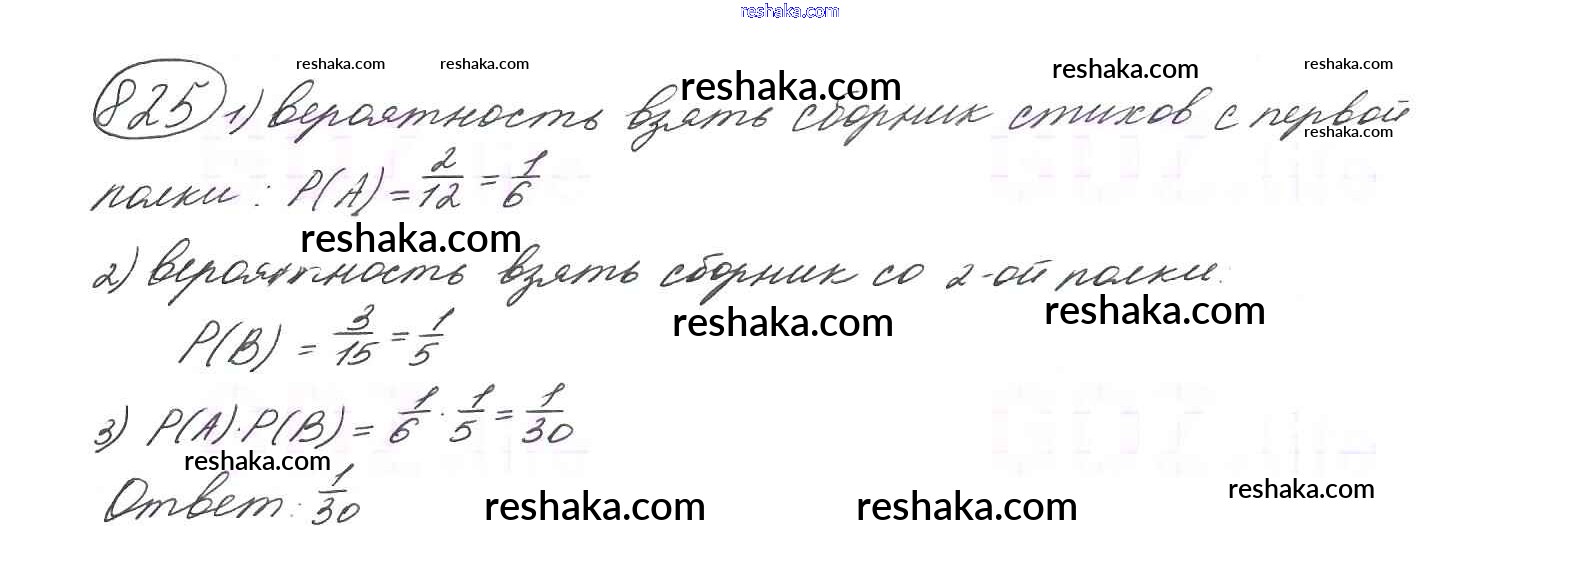 reshaka.com
reshaka.com reshaka.com reshaka.com reshaka.com reshaka.com
825 1) вероятность взять сборник стихов с первой
reshaka.com
полки: P(A) = 2/12 = 1/6
reshaka.com
2) вероятность взять сборник со 2-ой полки:
reshaka.com reshaka.com
P(B) = 3/15 = 1/5
3) P(A)·P(B) = 1/6 · 1/5 = 1/30
reshaka.com
Ответ: 1/30
reshaka.com reshaka.com reshaka.com